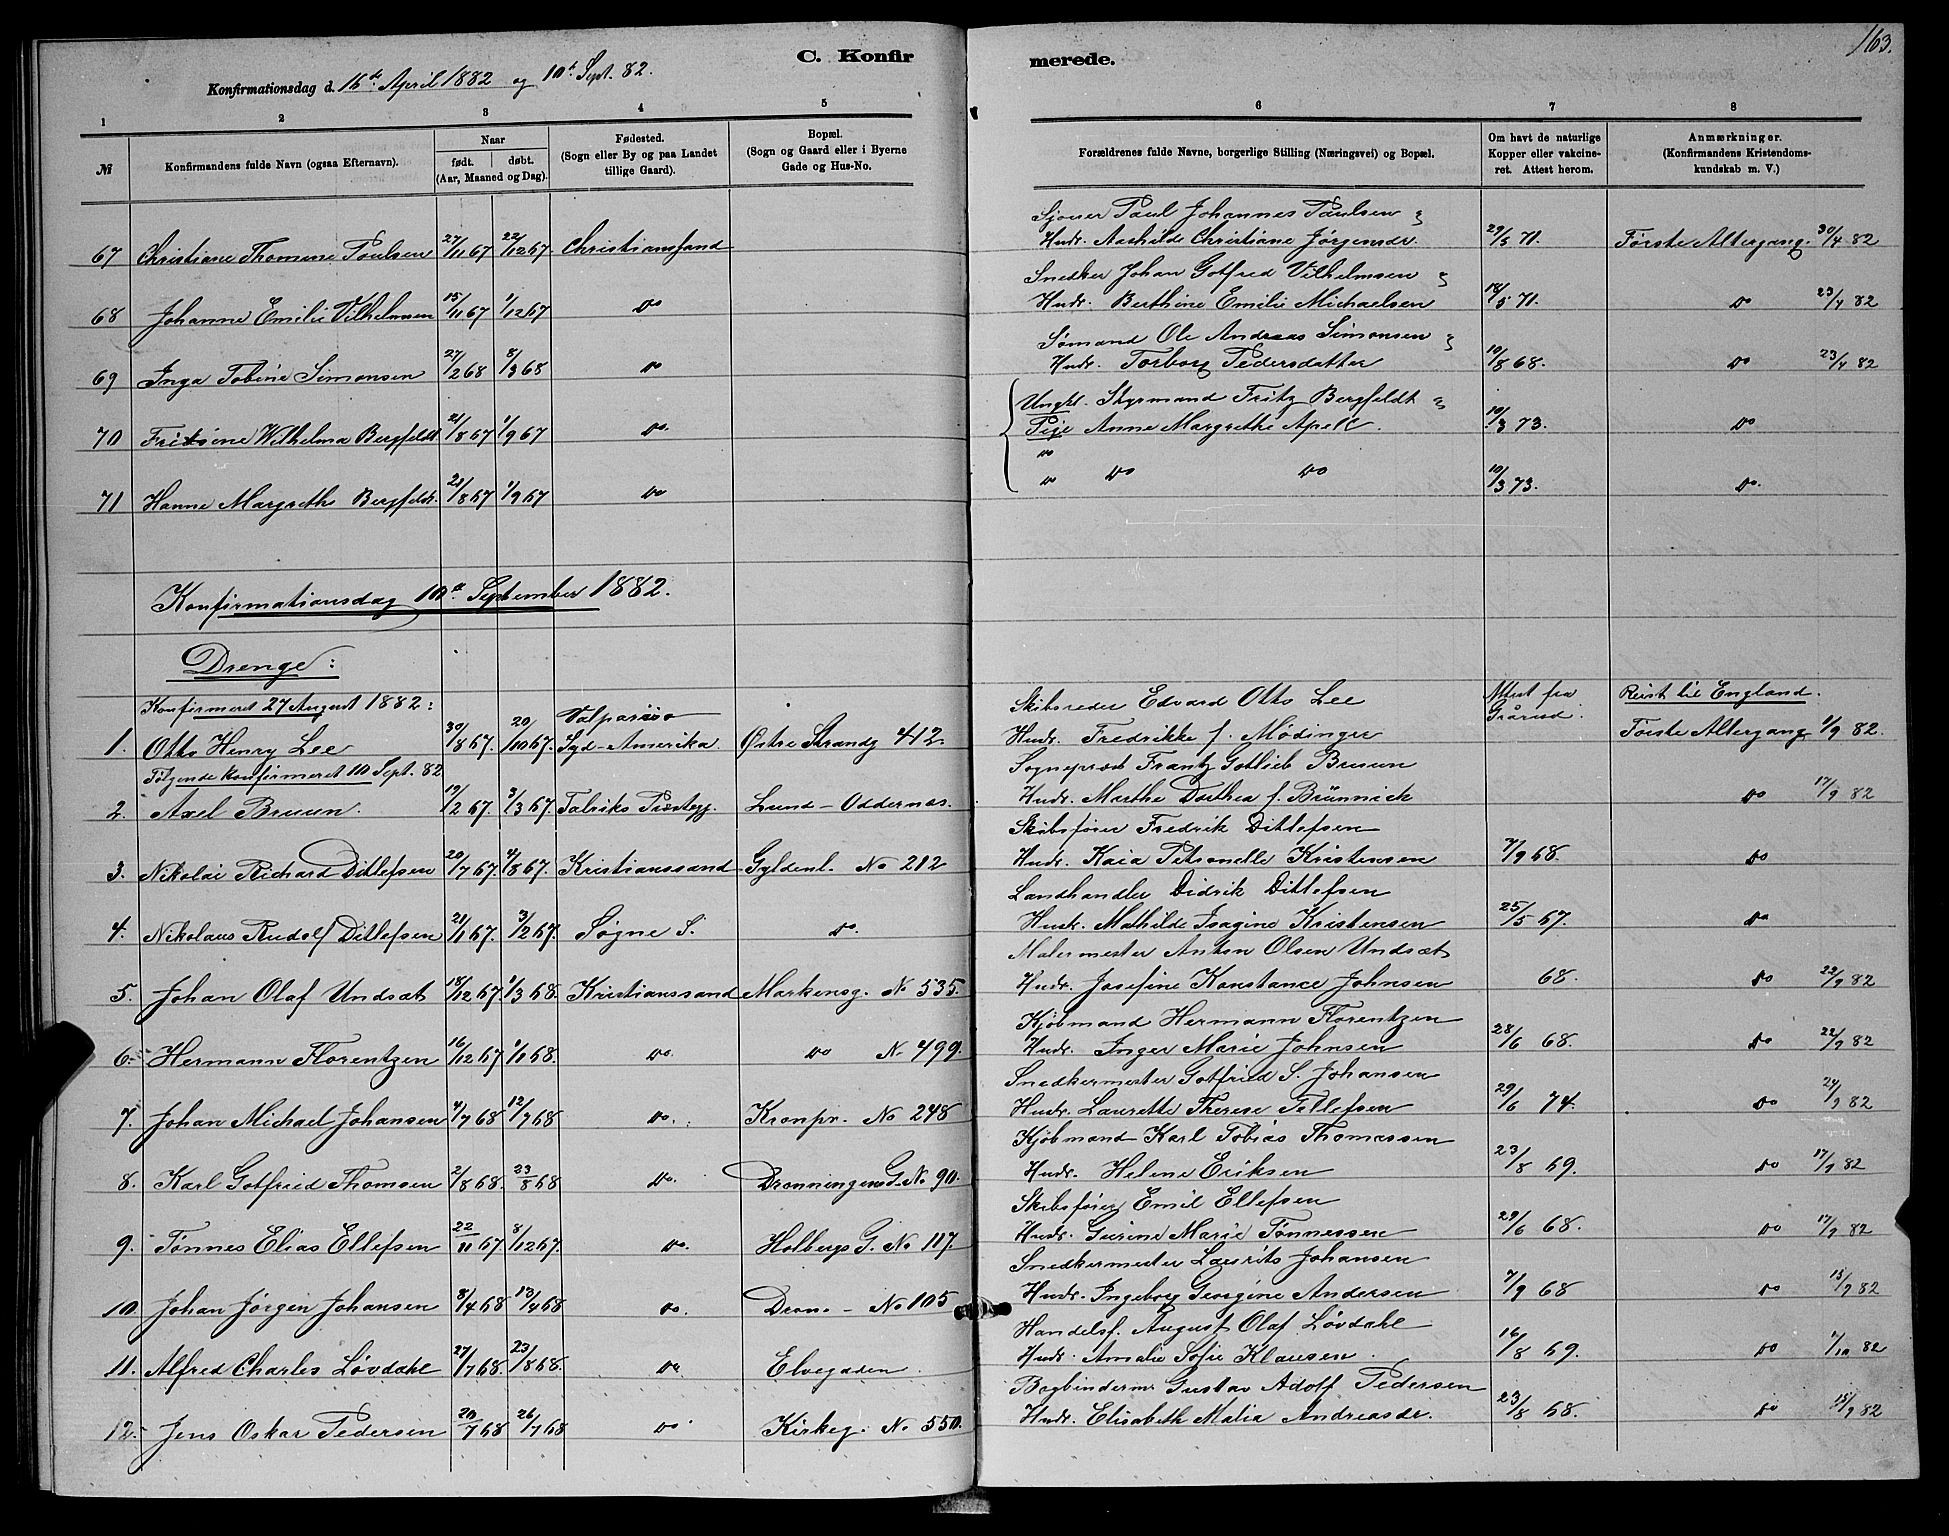 163.
C. Konfirmerede.
Konfirmationsdag d. 16de April 1882 og 10de Sept. 82.
1 2 3 4 5 6 7 8
№
Konfirmandens fulde Navn (ogsaa Efternavn).
Naar
født. døbt.
(Aar, Maaned og Dag).
Fødested.
(Sogn eller By og paa Landet
tillige Gaard).
Bopæl.
(Sogn og Gaard eller i Byerne
Gade og Hus-No.
Forældrenes fulde Navne, borgerlige Stilling (Næringsvei) og Bopæl.
Om havt de naturlige
Kopper eller vakcine-
ret. Attest herom.
Anmærkninger.
(Konfirmandens Kristendoms-
kundskab m. V.)
Sjouer Paul Johannes Paulsen
67 Christiane Thomine Poulsen 27/11 67 22/12 67 Christianssand Hustr. Aashilde Christiane Jørgensdr. 29/5 71. Første Altergang. 30/4 82
Snedker Johan Gotfred Vilhelmsen
68 Johanne Emilie Vilhelmsen 15/11 67 1/12 67 do Hustr. Berthine Emilie Michaelsen 18/5 71. do 23/4 82
Sømand Ole Andreas Simonsen
69 Inga Tobine Simonsen 27/2 68 8/3 68 do Hustr. Torborg Pedersdatter 10/8 68. do 23/4 82
Ungkl. Styrmand Fritz Bergfeldt
70 Fritsine Wilhelma Bergfeldt 21/8 67 1/9 67 do. Pige Anne Margrethe Apell. 10/3 73. do
71 Hanne Margrethe Bergfeldt. 21/8 67 1/9 67 do do do do do 10/3 73. do.
Konfirmationsdag 10de September 1882.
Drenge:
Konfirmeret 27 August 1882:
Valparaiso Skibsreder Edvard Otto Lee Attest fra Reist til England.
1. Otto Henry Lee 30/8 67. 20/10 67. Syd-Amerika. Østre Strandg 412. Hustr. Fredrikke f. Mødinger Første Altergang 1/9 82.
Følgende konfirmeret 10 Sept. 82 Sogneprest Frantz Gotlieb Bruun
2. Axel Bruun. 19/2 67. 3/3 67. Talviks Præstegj. Lund - Oddernæs. Hustr. Marthe Dorthea f. Brünnick do 17/9 82
Skibsfører Fredrik Ditlefsen
3. Nikolai Richard Ditlefsen 20/7 67. 4/8 67. Kristianssand Gyldenl. No 212 Hustr. Kaia Petronelle Kristensen 7/9 68. do
Landhandler Didrik Ditlefsen
4. Nikolaus Rudolf Ditlefsen 21/1 67. 3/2 67. Søgne S. do. Hustr. Mathilde Isagine Kristensen 25/5 67. do
Malermester Anton Olsen Undsæt
5. Johan Olaf Undsæt 18/12 67. 1/3 68. Kristianssand Markensg. No 535. Hustr. Josefine Konstance Johnsen 68. do 22/9 82
Kjøbmand Hermann Florentzen
6. Hermann Florentzen 16/12 67 1/1 68. do. do No 499. Hustr. Inger Marie Johnsen 28/6 68. do 22/9 82
Snedkermester Gotfried S. Johansen
7. Johan Michael Johansen 4/7 68 12/7 68 do. Kronpr. No 248 Hustr. Laurette Therese Tellefsen 29/6 74. do 24/9 82
Kjøbmand Karl Tobias Thomassen
8. Karl Gotfried Thomsen 2/8 68. 23/8 68 do. Dronningens G. No 90. Hustr. Helene Eriksen 23/8 69. do 17/9 82
Skibsfører Emil Ellefsen
9. Tønnes Elias Ellefsen 22/11 67 8/12 67. do. Holbergs G. No 117. Hustr. Gurine Marie Tønnessen 29/6 68. do 17/9 82
Snedkermester Laurits Johansen
10. Johan Jørgen Johansen 3/4 68 13/4 68 do. Dron. - No 105 Hustr. Ingeborg Georgine Andersen 7/9 68 do 15/9 82
Handelsf. August Olaf Løvdahl
11. Alfred Charles Løvdahl 27/7 68. 23/8 68. do Elvegaden. Hustr. Amalie Sofie Klausen. 16/8 69. do 7/10 82
Bogbinderm. Gustav Adolf Pedersen
12. Jens Oskar Pedersen 20/7 68 26/7 68 do Kirkeg. No 550. Hustr. Elisabeth Malia Andreasdr. 23/8 68. do 15/9 82